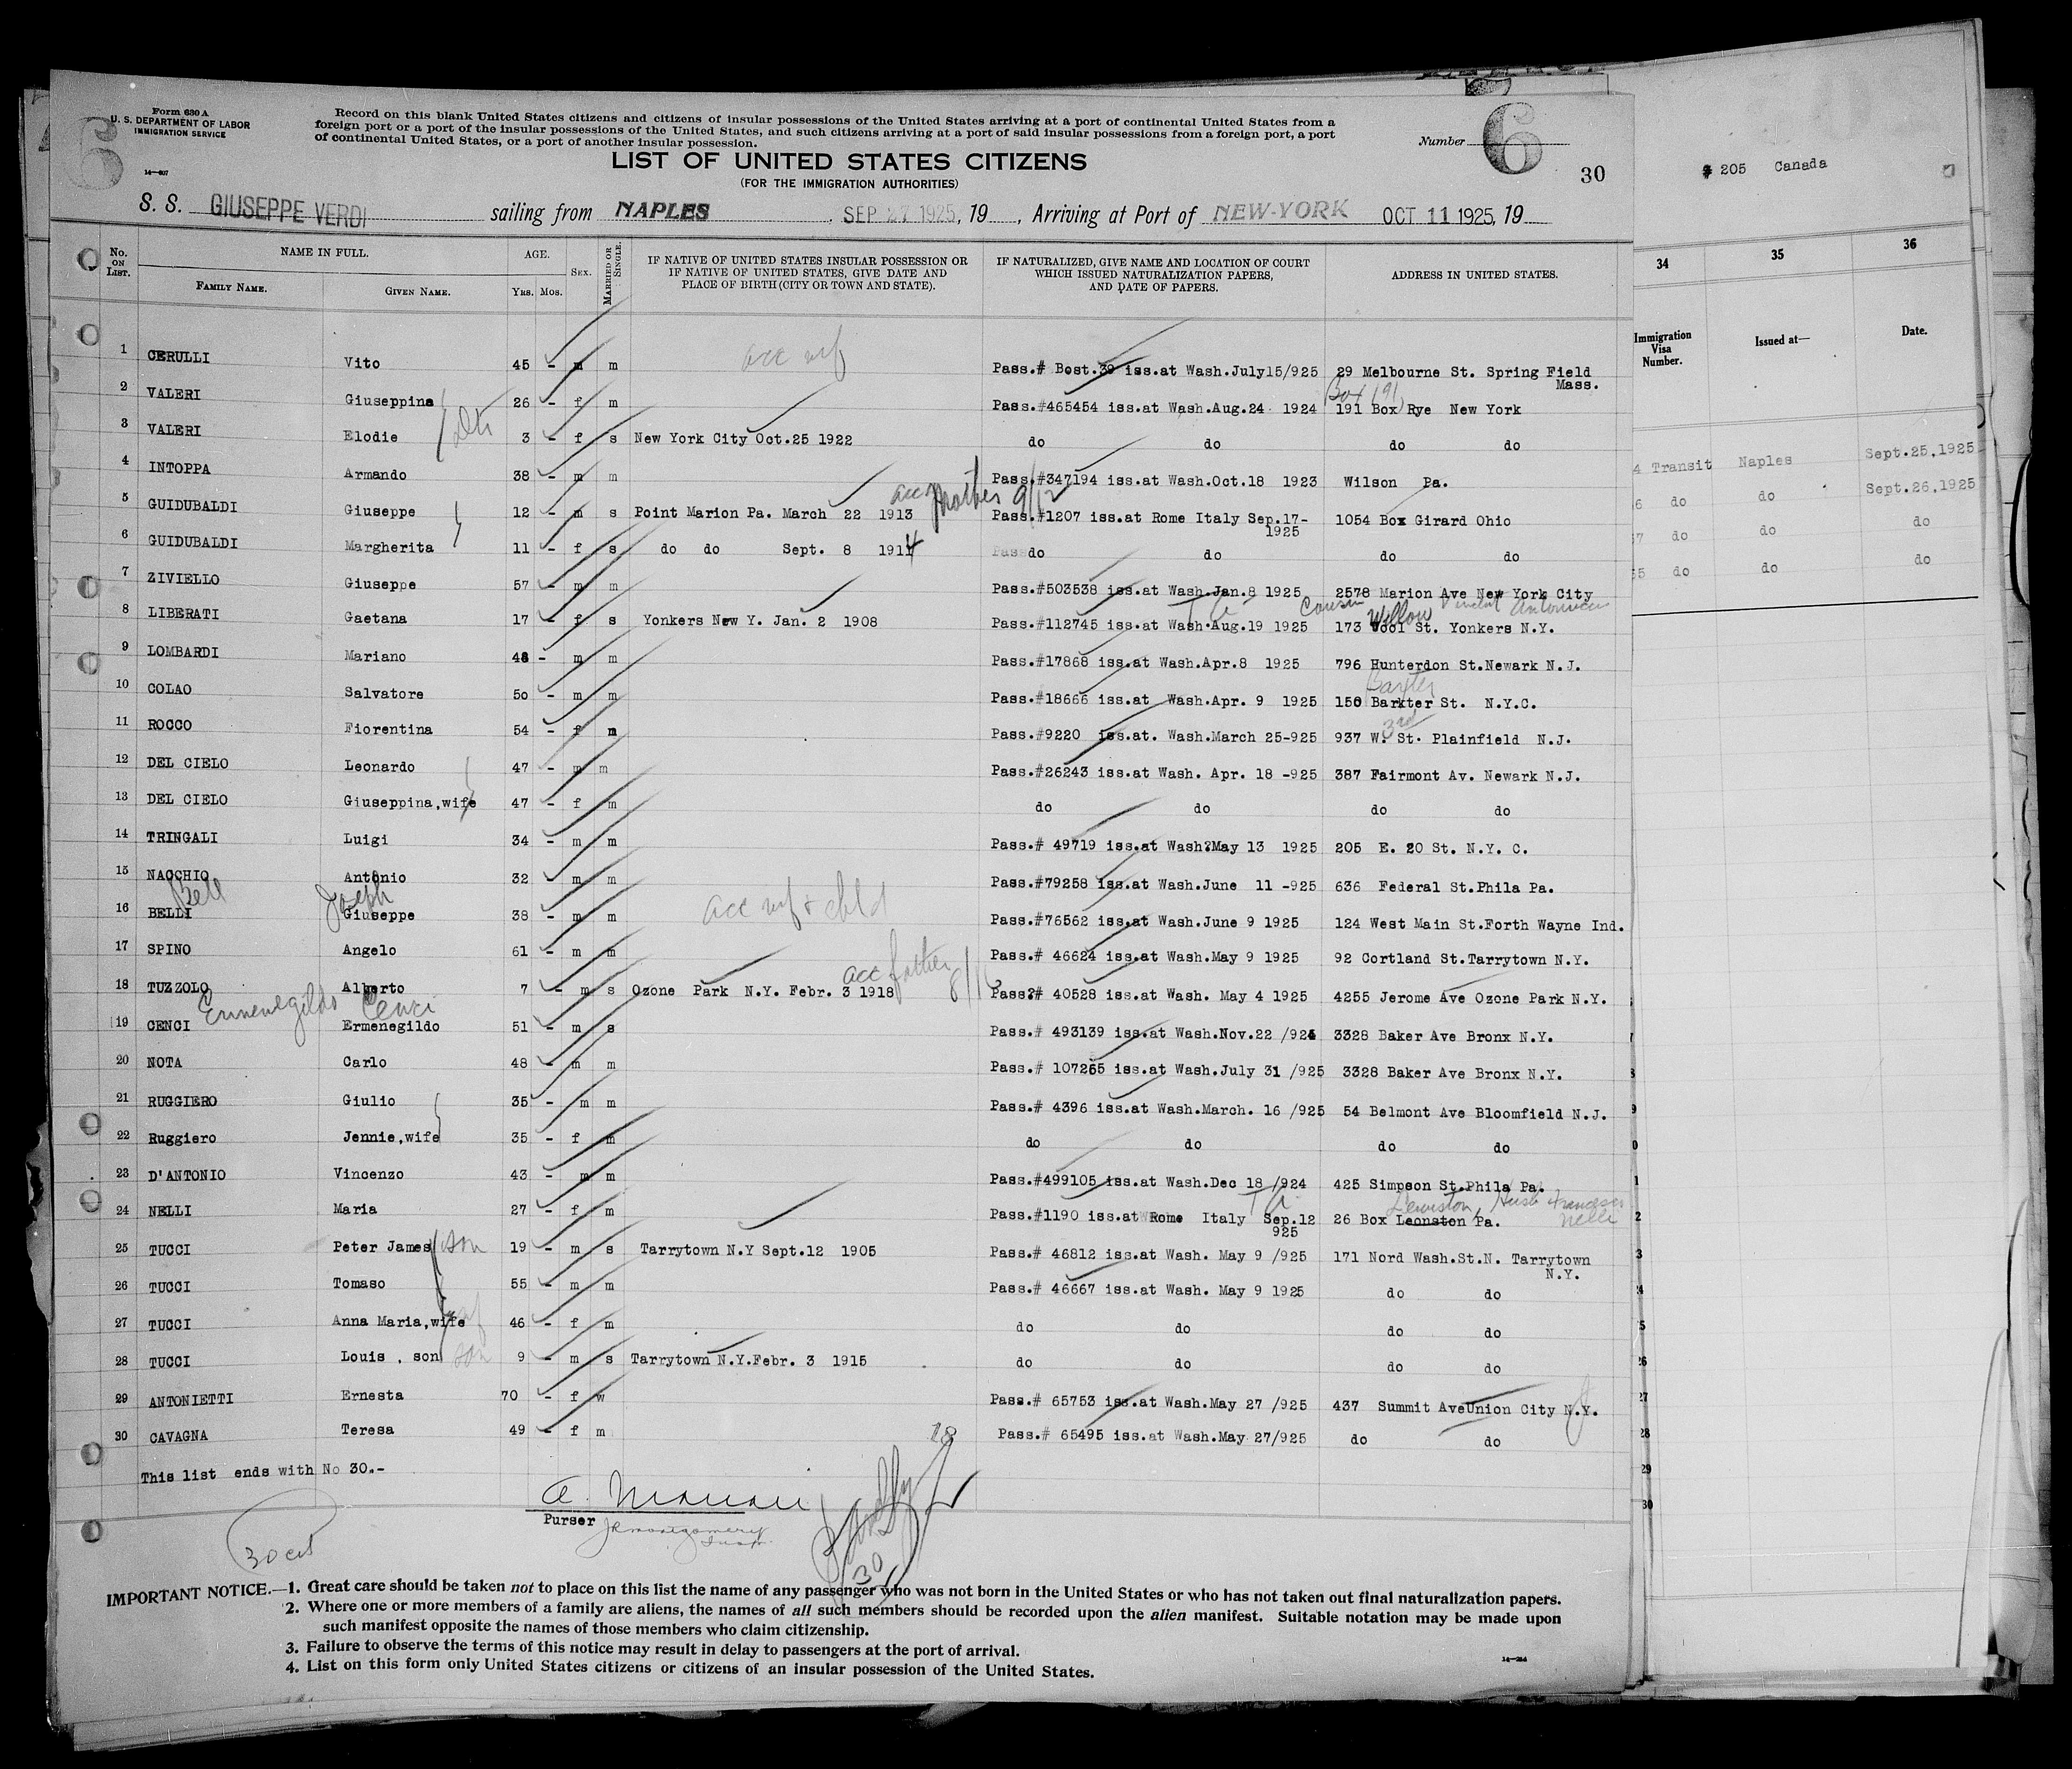 Form 630 A
U. S. DEPARTMENT OF LABOR
IMMIGRATION SERVICE
14—607
6
Record on this blank United States citizens and citizens of insular possessions of the United States arriving at a port of continental United States from a
foreign port or a port of the insular possessions of the United States, and such citizens arriving at a port of said insular possessions from a foreign port, a port
of continental United States, or a port of another insular possession.
Number 6
30
LIST OF UNITED STATES CITIZENS
(FOR THE IMMIGRATION AUTHORITIES)
S. S. GIUSEPPE VERDI sailing from NAPLES, SEP 27 1925, 19 , Arriving at Port of NEW-YORK OCT 11 1925, 19
No. ON LIST. NAME IN FULL. FAMILY NAME. GIVEN NAME. AGE. YRS. MOS. SEX. MARRIED OR SINGLE. IF NATIVE OF UNITED STATES INSULAR POSSESSION OR IF NATIVE OF UNITED STATES, GIVE DATE AND PLACE OF BIRTH (CITY OR TOWN AND STATE). IF NATURALIZED, GIVE NAME AND LOCATION OF COURT WHICH ISSUED NATURALIZATION PAPERS, AND DATE OF PAPERS. ADDRESS IN UNITED STATES.
1 CERULLI Vito 45 - m m acc wf Pass.# Bost.39 iss.at Wash.July15/925 29 Melbourne St. Spring Field Mass.
2 VALERI Giuseppina 26 - f m Pass.#465454 iss.at Wash.Aug.24 1924 Box 191 191 Box Rye New York
3 VALERI Elodie 3 - f s New York City Oct.25 1922 do do do do
4 INTOPPA Armando 38 - m m Pass.#347194 iss.at Wash.Oct.18 1923 Wilson Pa.
5 GUIDUBALDI Giuseppe 12 - m s Point Marion Pa. March 22 1913 acc mother 9/12 Pass.#1207 iss.at Rome Italy Sep.17-1925 1054 Box Girard Ohio
6 GUIDUBALDI Margherita 11 - f s do do Sept. 8 1914 do do do do
7 ZIVIELLO Giuseppe 57 - m m Pass.#503538 iss.at Wash.Jan.8 1925 2578 Marion Ave New York City
8 LIBERATI Gaetana 17 - f s Yonkers New Y. Jan. 2 1908 Pass.#112745 iss.at Wash.Aug.19 1925 Cousin Vincent 173 Willow Wool St. Yonkers N.Y.
9 LOMBARDI Mariano 48 - m m Pass.#17868 iss.at Wash.Apr.8 1925 796 Hunterdon St.Newark N.J.
10 COLAO Salvatore 50 - m m Pass.#18666 iss.at Wash.Apr. 9 1925 150 Barkter St. N.Y.C. Baxter
11 ROCCO Fiorentina 54 - f m Pass.#9220 iss.at. Wash.March 25-925 937 W. 3rd St. Plainfield N.J.
12 DEL CIELO Leonardo 47 - m m Pass.#26243 iss.at Wash. Apr. 18 -925 387 Fairmont Av. Newark N.J.
13 DEL CIELO Giuseppina,wife 47 - f m do do do do
14 TRINGALI Luigi 34 - m m Pass.# 49719 iss.at Wash?May 13 1925 205 E. 20 St. N.Y. C.
15 NACCHIO Antonio 32 - m m Pass.#79258 iss.at Wash.June 11 -925 636 Federal St.Phila Pa.
Bell Joseph
16 BELLI Giuseppe 38 - m m acc wf & chld Pass.#76562 iss.at Wash.June 9 1925 124 West Main St.Forth Wayne Ind.
17 SPINO Angelo 61 - m m Pass.# 46624 iss.at Wash.May 9 1925 92 Cortland St.Tarrytown N.Y.
18 TUZZOLO Alberto 7 - m s Ozone Park N.Y. Febr. 3 1918 acc father Pass?# 40528 iss.at Wash. May 4 1925 4255 Jerome Ave Ozone Park N.Y.
Ermenegildo Cenci
19 CENCI Ermenegildo 51 - m s Pass.# 493139 iss.at Wash.Nov.22 /924 3328 Baker Ave Bronx N.Y.
20 NOTA Carlo 48 - m m Pass.# 107265 iss.at Wash.July 31 /925 3328 Baker Ave Bronx N.Y.
21 RUGGIERO Giulio 35 - m m Pass.# 4396 iss.at Wash.March. 16 /925 54 Belmont Ave Bloomfield N.J.
22 Ruggiero Jennie,wife 35 - f m do do do do
23 D'ANTONIO Vincenzo 43 - m m Pass.#499105 iss.at Wash.Dec 18 /924 425 Simpson St.Phila Pa.
24 NELLI Maria 27 - f m Pass.#1190 iss.at Rome Italy Sep.12 925 26 Box Leonston Pa. Lewiston, Husb Francesco Nelli
25 TUCCI Peter James son 19 - m s Tarrytown N.Y Sept.12 1905 Pass.# 46812 iss.at Wash. May 9 /925 171 Nord Wash.St.N. Tarrytown N.Y.
26 TUCCI Tomaso 55 - m m Pass.# 46667 iss.at Wash. May 9 1925 do do
27 TUCCI Anna Maria,wife wf 46 - f m do do do do
28 TUCCI Louis , son son 9 - m s Tarrytown N.Y.Febr. 3 1915 do do do do
29 ANTONIETTI Ernesta 70 - f w Pass.# 65753 iss.at Wash.May 27 /925 437 Summit AveUnion City N.Y.
30 CAVAGNA Teresa 49 - f m Pass.# 65495 iss.at Wash.May 27/925 do do
This list ends with No 30.-
Purser
JRMontgomery
Insp.
30 cit
30
IMPORTANT NOTICE.—1. Great care should be taken not to place on this list the name of any passenger who was not born in the United States or who has not taken out final naturalization papers.
2. Where one or more members of a family are aliens, the names of all such members should be recorded upon the alien manifest. Suitable notation may be made upon
such manifest opposite the names of those members who claim citizenship.
3. Failure to observe the terms of this notice may result in delay to passengers at the port of arrival.
4. List on this form only United States citizens or citizens of an insular possession of the United States.
14—264
# 205 Canada
34 35 36
Immigration Visa Number. Issued at— Date.
4 Transit Naples Sept.25,1925
6 do do Sept.26,1925
7 do do do
55 do do do